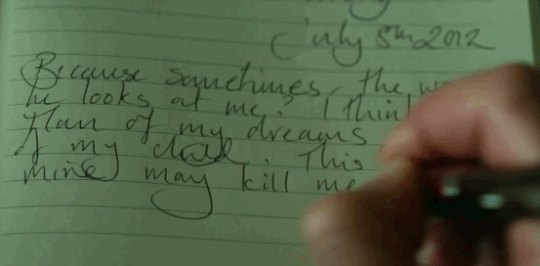 July 5th 2012
Because sometimes, the
he looks at me? I think
man of my dreams
of my
This
mine may kill me